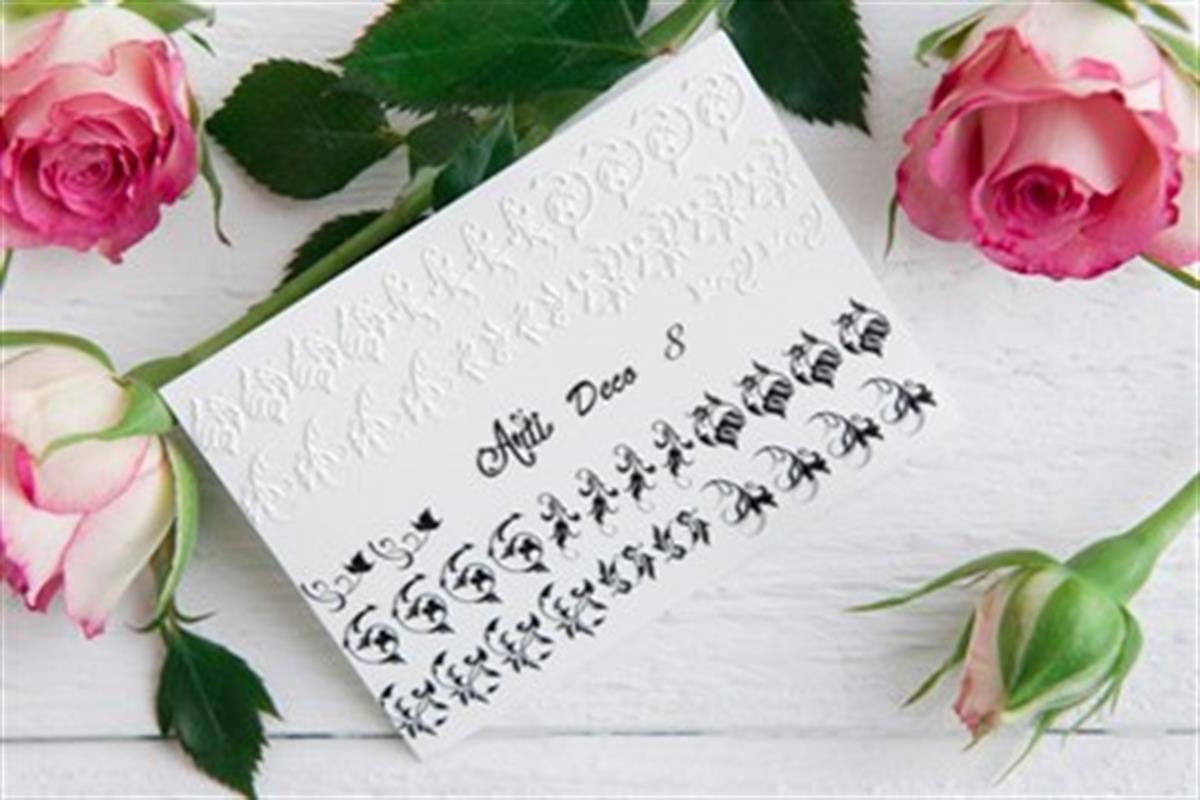 Arti Deco 8